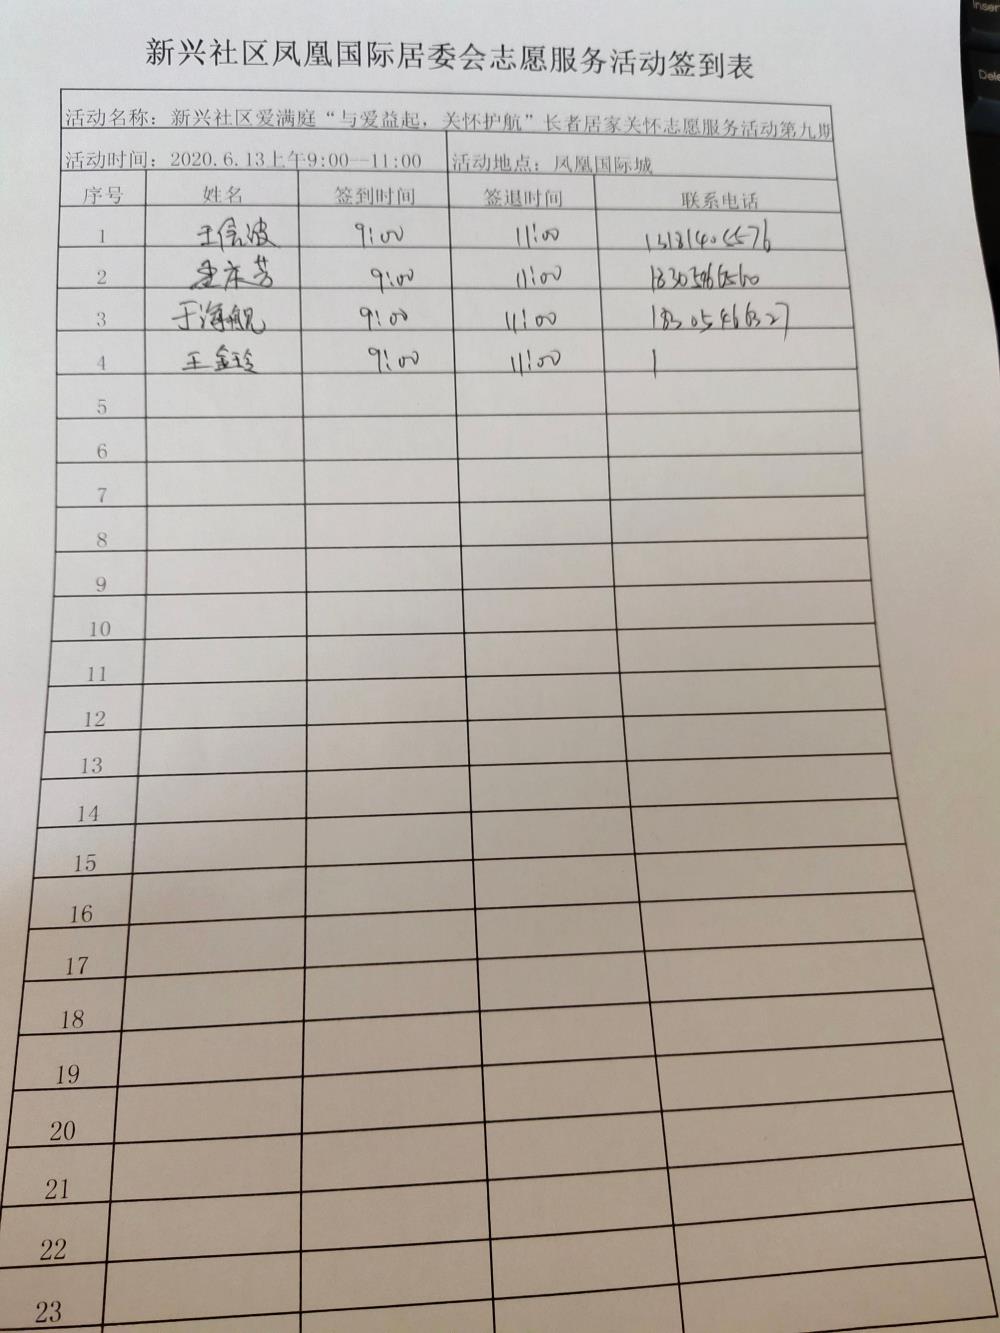 新兴社区凤凰国际居委会志愿服务活动签到表
活动名称：新兴社区爱满庭“与爱益起，关怀护航”长者居家关怀志愿服务活动第九期
活动时间：2020.6.13上午9:00—11:00 活动地点：凤凰国际城
序号 姓名 签到时间 签退时间 联系电话
1 9:00 11:00 13181405576
2 9:00 11:00
3 于海舰 9:00 11:00 18305466327
4 王金玲 9:00 11:00 1
5
6
7
8
9
10
11
12
13
14
15
16
17
18
19
20
21
22
23
Inser
Dele